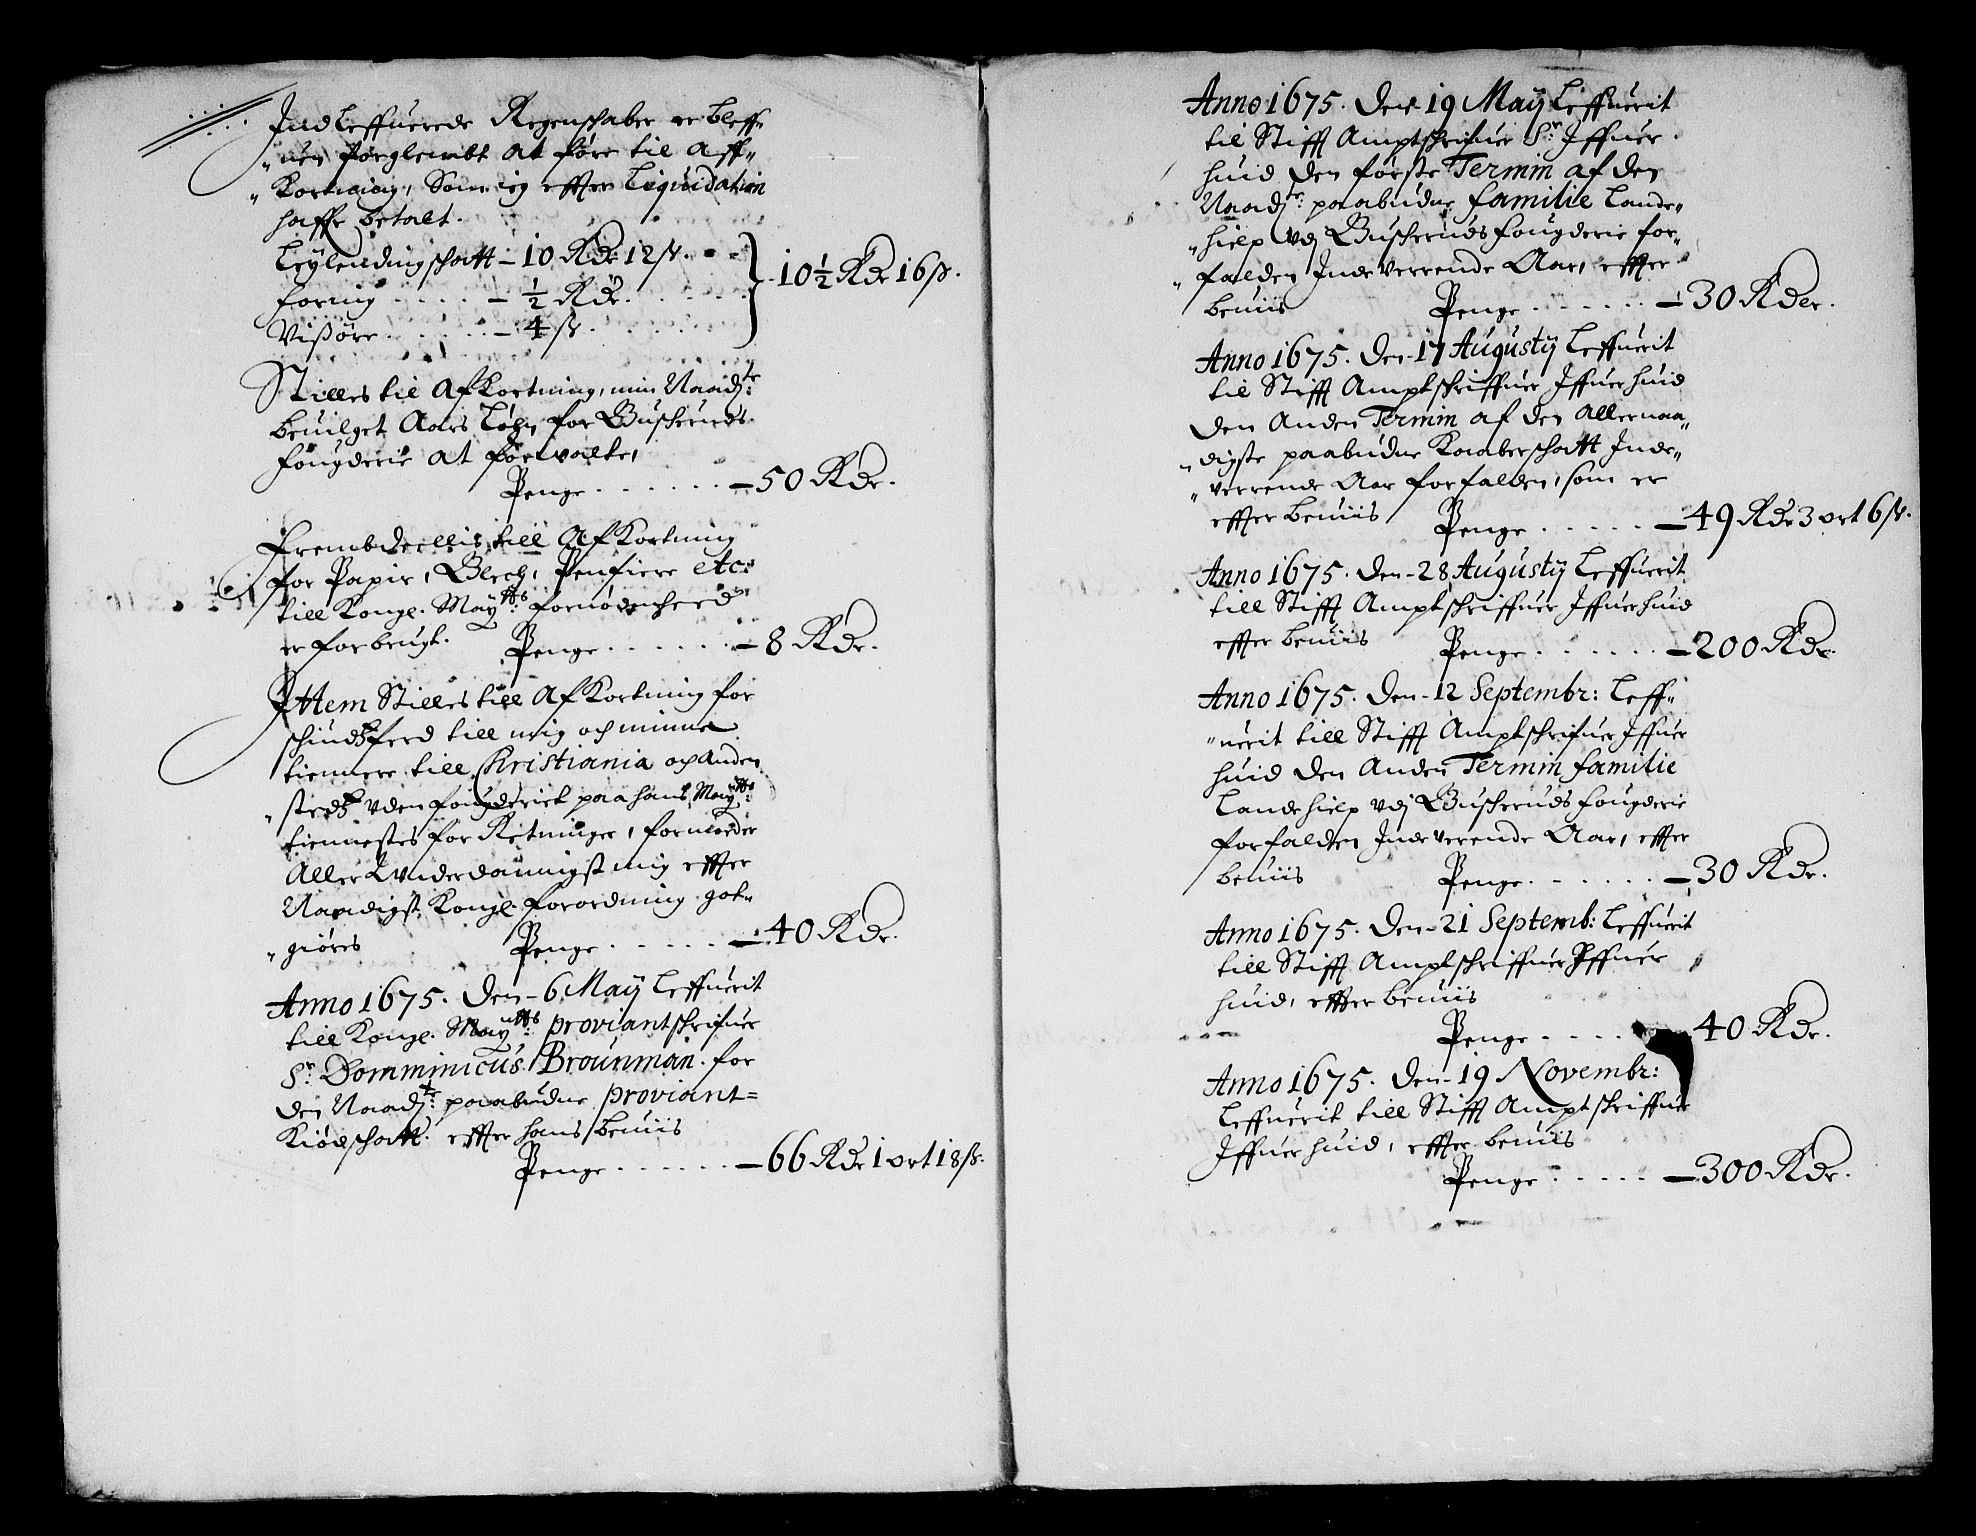 Indleffuerede Regenschaber er bleff-
"uen forglembt at føre til aff-
"Kortning, Som ieg effter Liqvidation
haffr betalt.
Leylendingschatt – 10 Rdr 12 ß.
foering – ½ Rdr.
Vißøre – 4 ß.
10½ Rdr 16 ß.
Stilles til AfKortning, min Naadste
beuilget Aars Løhn for Buscheruds
fougderie at forwalte,
Penge – 50 Rdr.
Frembdeelis till AfKortning
for Papir, Blech, Penfiere etc:
till Kongl. Mayttz fornødenheed
er forbrugt. Penge – 8 Rdr.
Ittem Stilles till AfKortning for
schiudtzferd till mig och minne
tiennere till Christiania och anden
"stedtz vden fougderiet paa hans Mayttz
tiennestes forRetninger, formoeder
Aller Underdannigst mig effter
Naadigst Kongl. forordning got-
"giøres Penge – 40 Rdr.
Anno 1675. Den 6 Maÿ Leffuerit
till Kongl. Mayttz proviantschrifuer
Sr: Domminicus Brounman. for
den Naadste paabudne proviant=
Kiødschatt. effter hans beuiis
Penge – 66 Rdr 1 ort 18 ß.
Anno 1675. Den 19 Maÿ Leffuerit
til Stifft Amptschrifuer Sr: Iffuer
huid den første Termin af den
Naadste: paabudne familie Lande-
"hielp vdj Buscheruds fougderie for-
"falden Indeverrende Aar, effter
beuiis Penge – 30 Rder.
Anno 1675. Den 17 Augustÿ Leffuerit
til Stifft Amptschriffuer Iffuer huid
den Anden Termin af den allernaa-
"digste paabudne Kaaberschatt Inde-
"verrende Aar forfalden, som er
effter beuiis Penge – 49 Rdr 3 ort 6 ß.
Anno 1675. Den 28 Augustÿ Leffuerit
till Stifft Amptschriffuer Iffuer huid
effter beuiis Penge – 200 Rdr.
Anno 1675. Den 12 Septembr: Leff-
"uerit till Stifft Amptschrifuer Iffuer
huid den Anden Termin familie
Landehielp vdj Buscheruds fougderie
forfalden Indeverende Aar, effter
beuiis Penge – 30 Rdr.
Anno 1675. Den 21 Septemb: Leffuerit
till Stifft Amptschriffuer Iffuer
huid, effter beuiis
Penge – 40 Rdr.
Anno 1675. Den 19 Novembr:
Leffuerit till Stifft Amptschriffuer
Iffuer huid, effter beuiis
Penge – 300 Rdr.